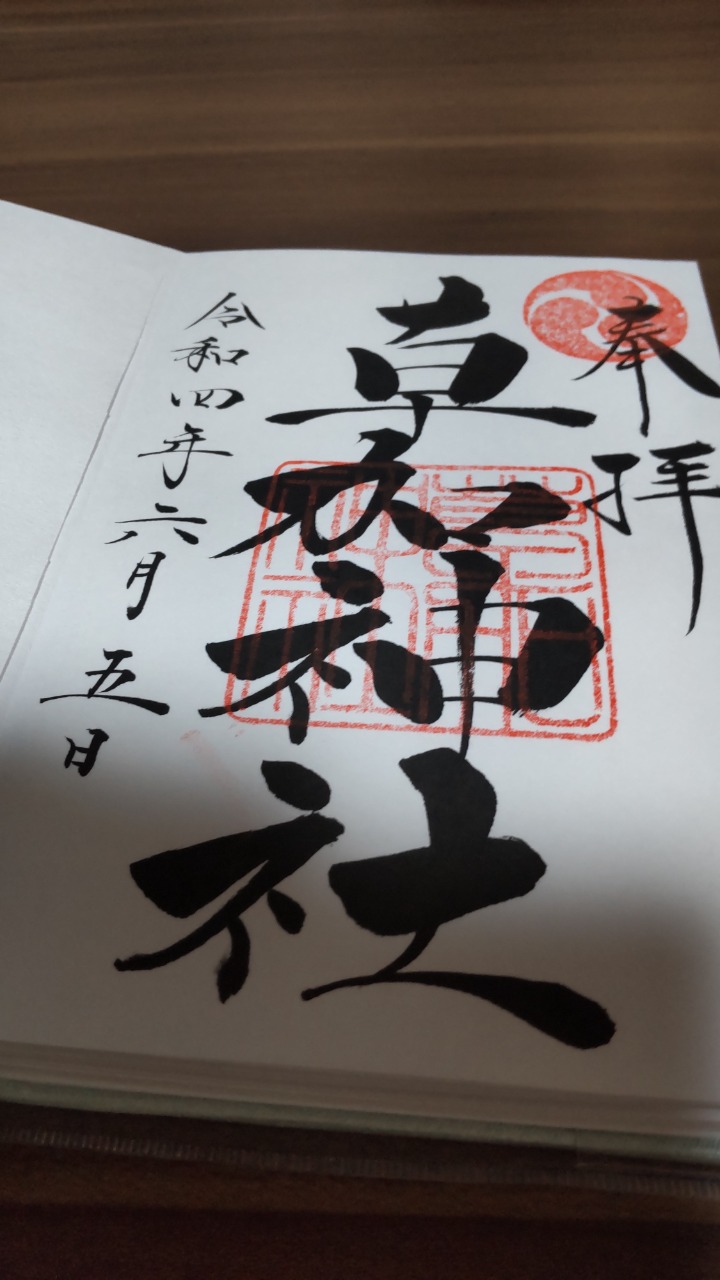 奉拝
草加神社
令和四年六月五日